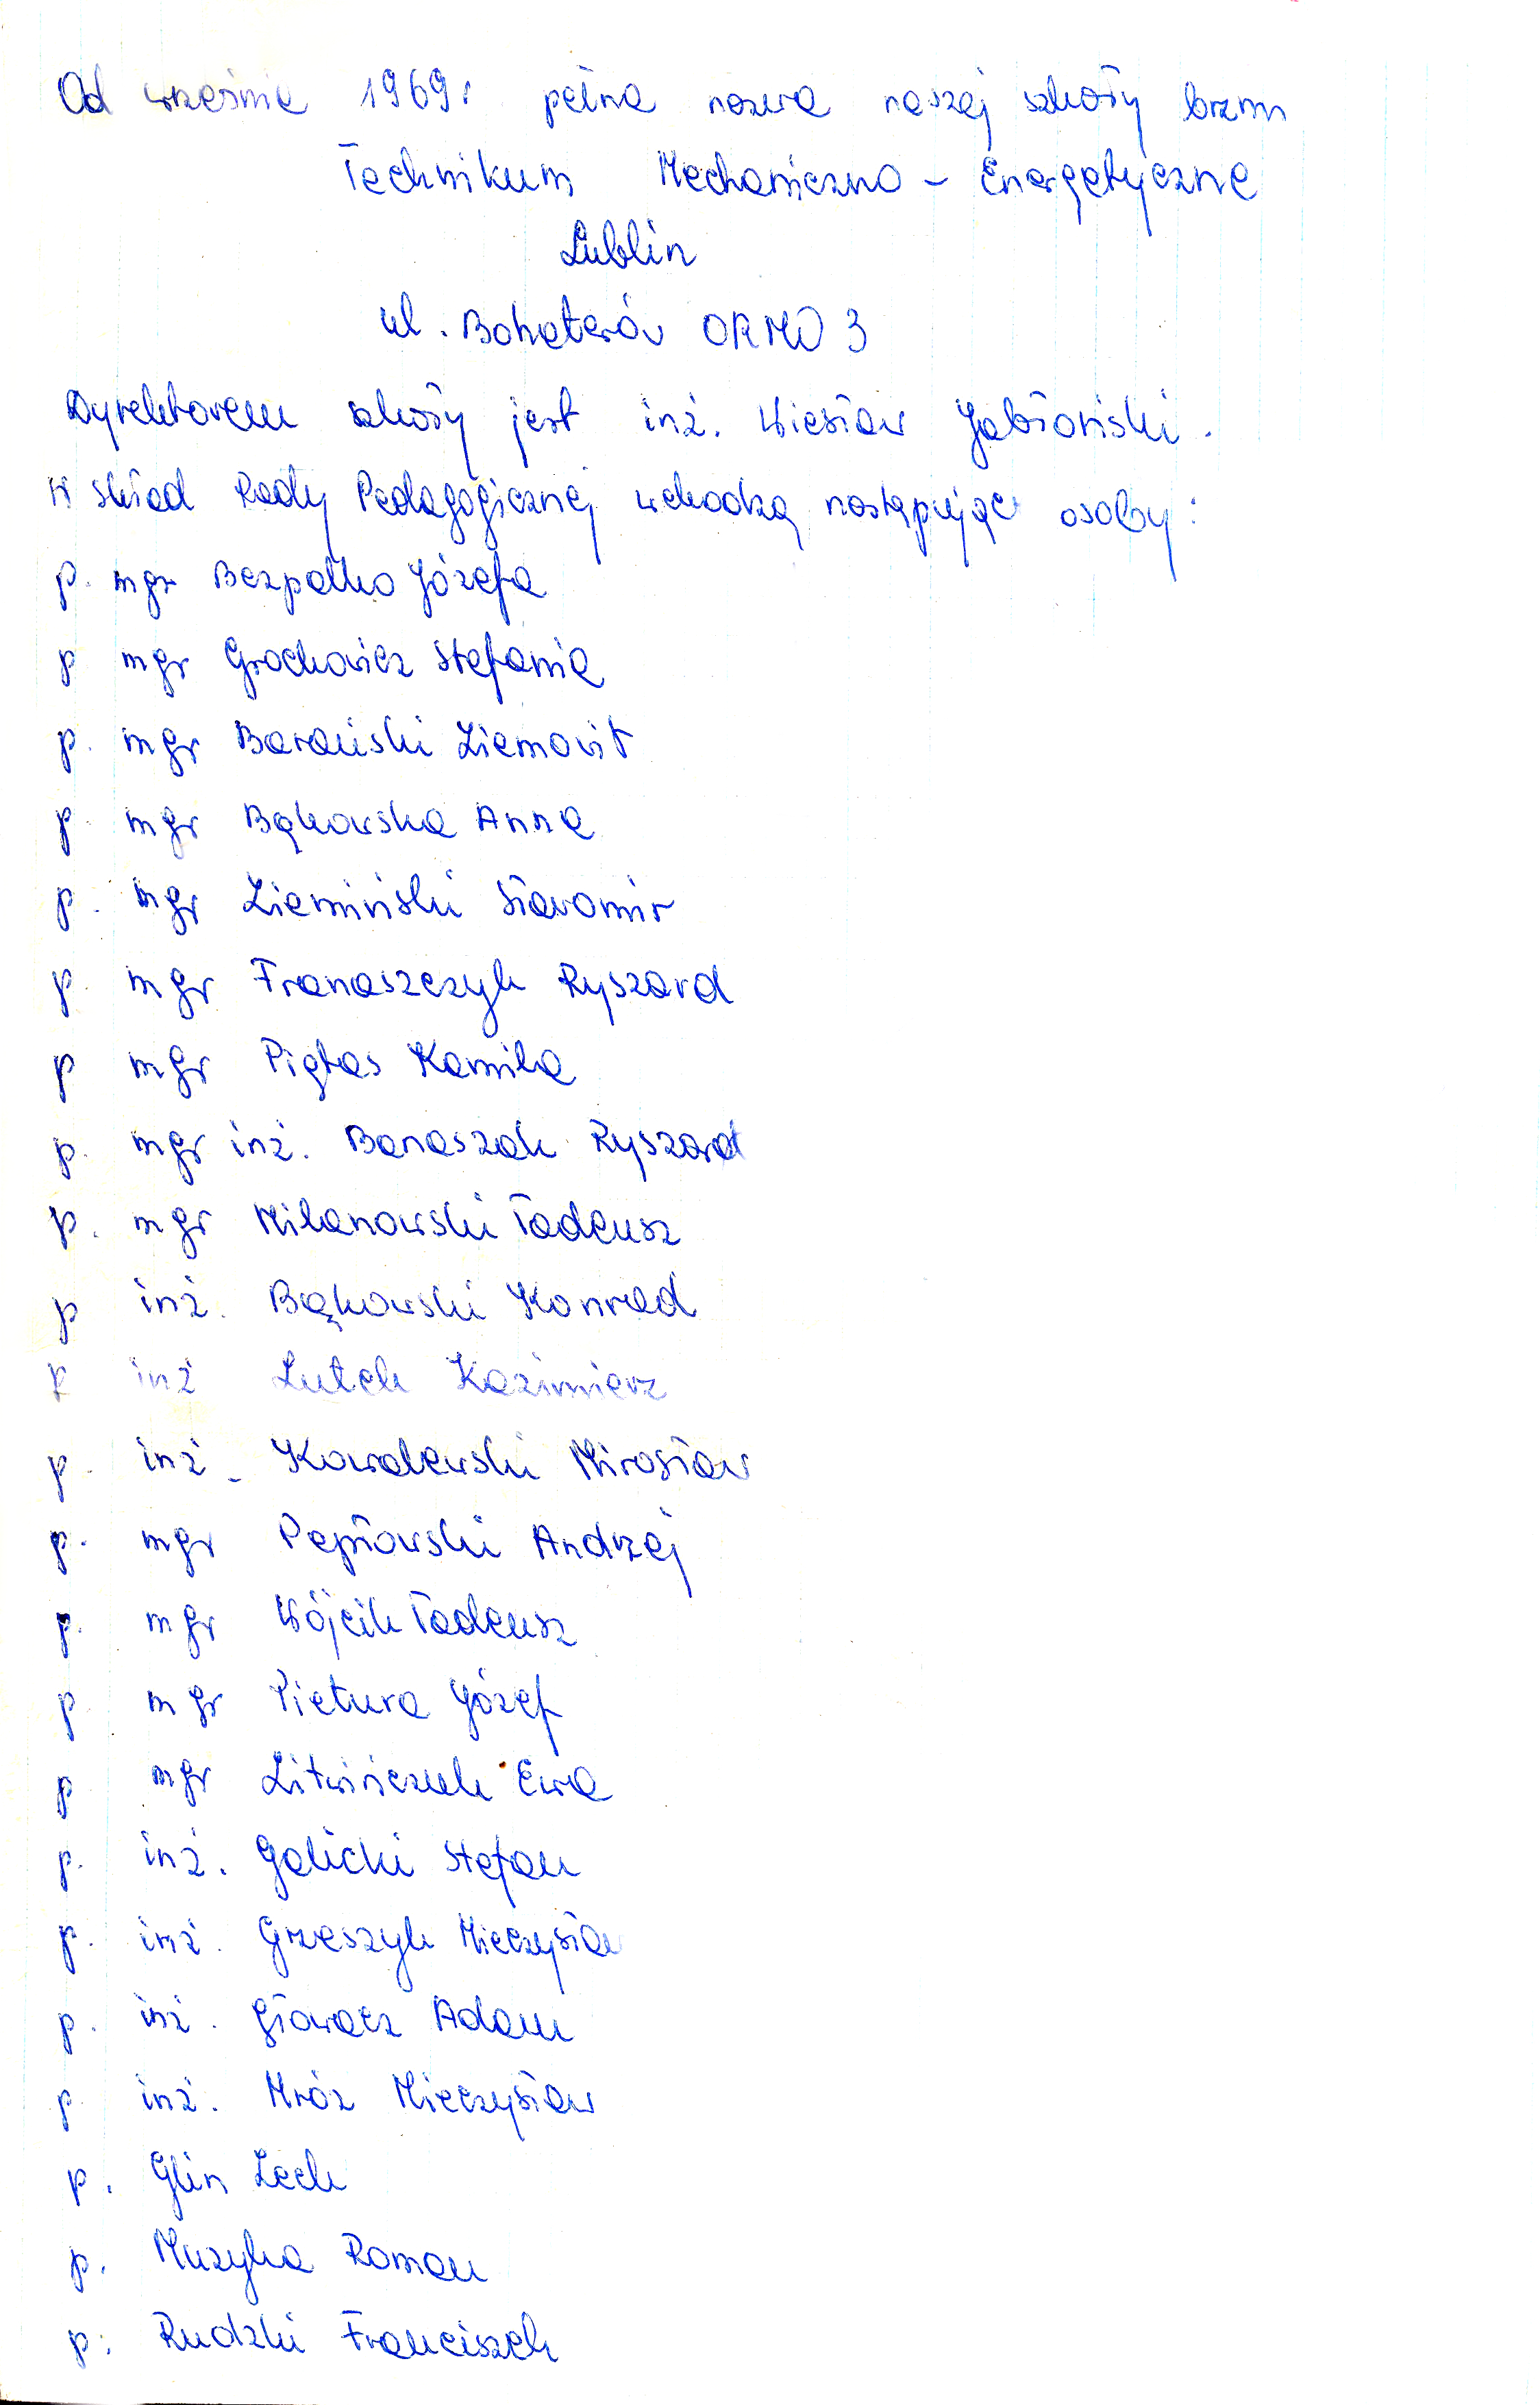 Od września 1969r pełna nazwa naszej szkoły brzmi
Technikum Mechaniczno - Energetyczne
Lublin
ul. Bohaterów ORMO 3
Dyrektorem szkoły jest inż. Wiesław Jabłoński.
W skład Rady Pedagogicznej wchodzą następujące osoby:
p. mgr Bezpałko Józefa
p mgr Grochowicz Stefania
p. mgr Barański Ziemowit
p. mgr Bąkowska Anna
p. mgr Ziemiński Sławomir
p. mgr Franaszczyk Ryszard
p mgr Piętas Kamila
p. mgr inż. Banaszak Ryszard
p. mgr Milanowski Tadeusz
p inż. Bąkowski Konrad
p inż Lutek Kazimierz
p. inż. Kowalewski Mirosław
p. mgr Pepłowski Andrzej
p. mgr Wójcik Tadeusz
p mgr Pietura Józef
p mgr Litwińczuk Ewa
p. inż. Galicki Stefan
p. inż. Grzeszyk Mieczysław
p. inż. Głowacz Adam
p inż. Mróz Mieczysław
p. Glin Lech
p. Muzyka Roman
p. Rudzki Franciszek